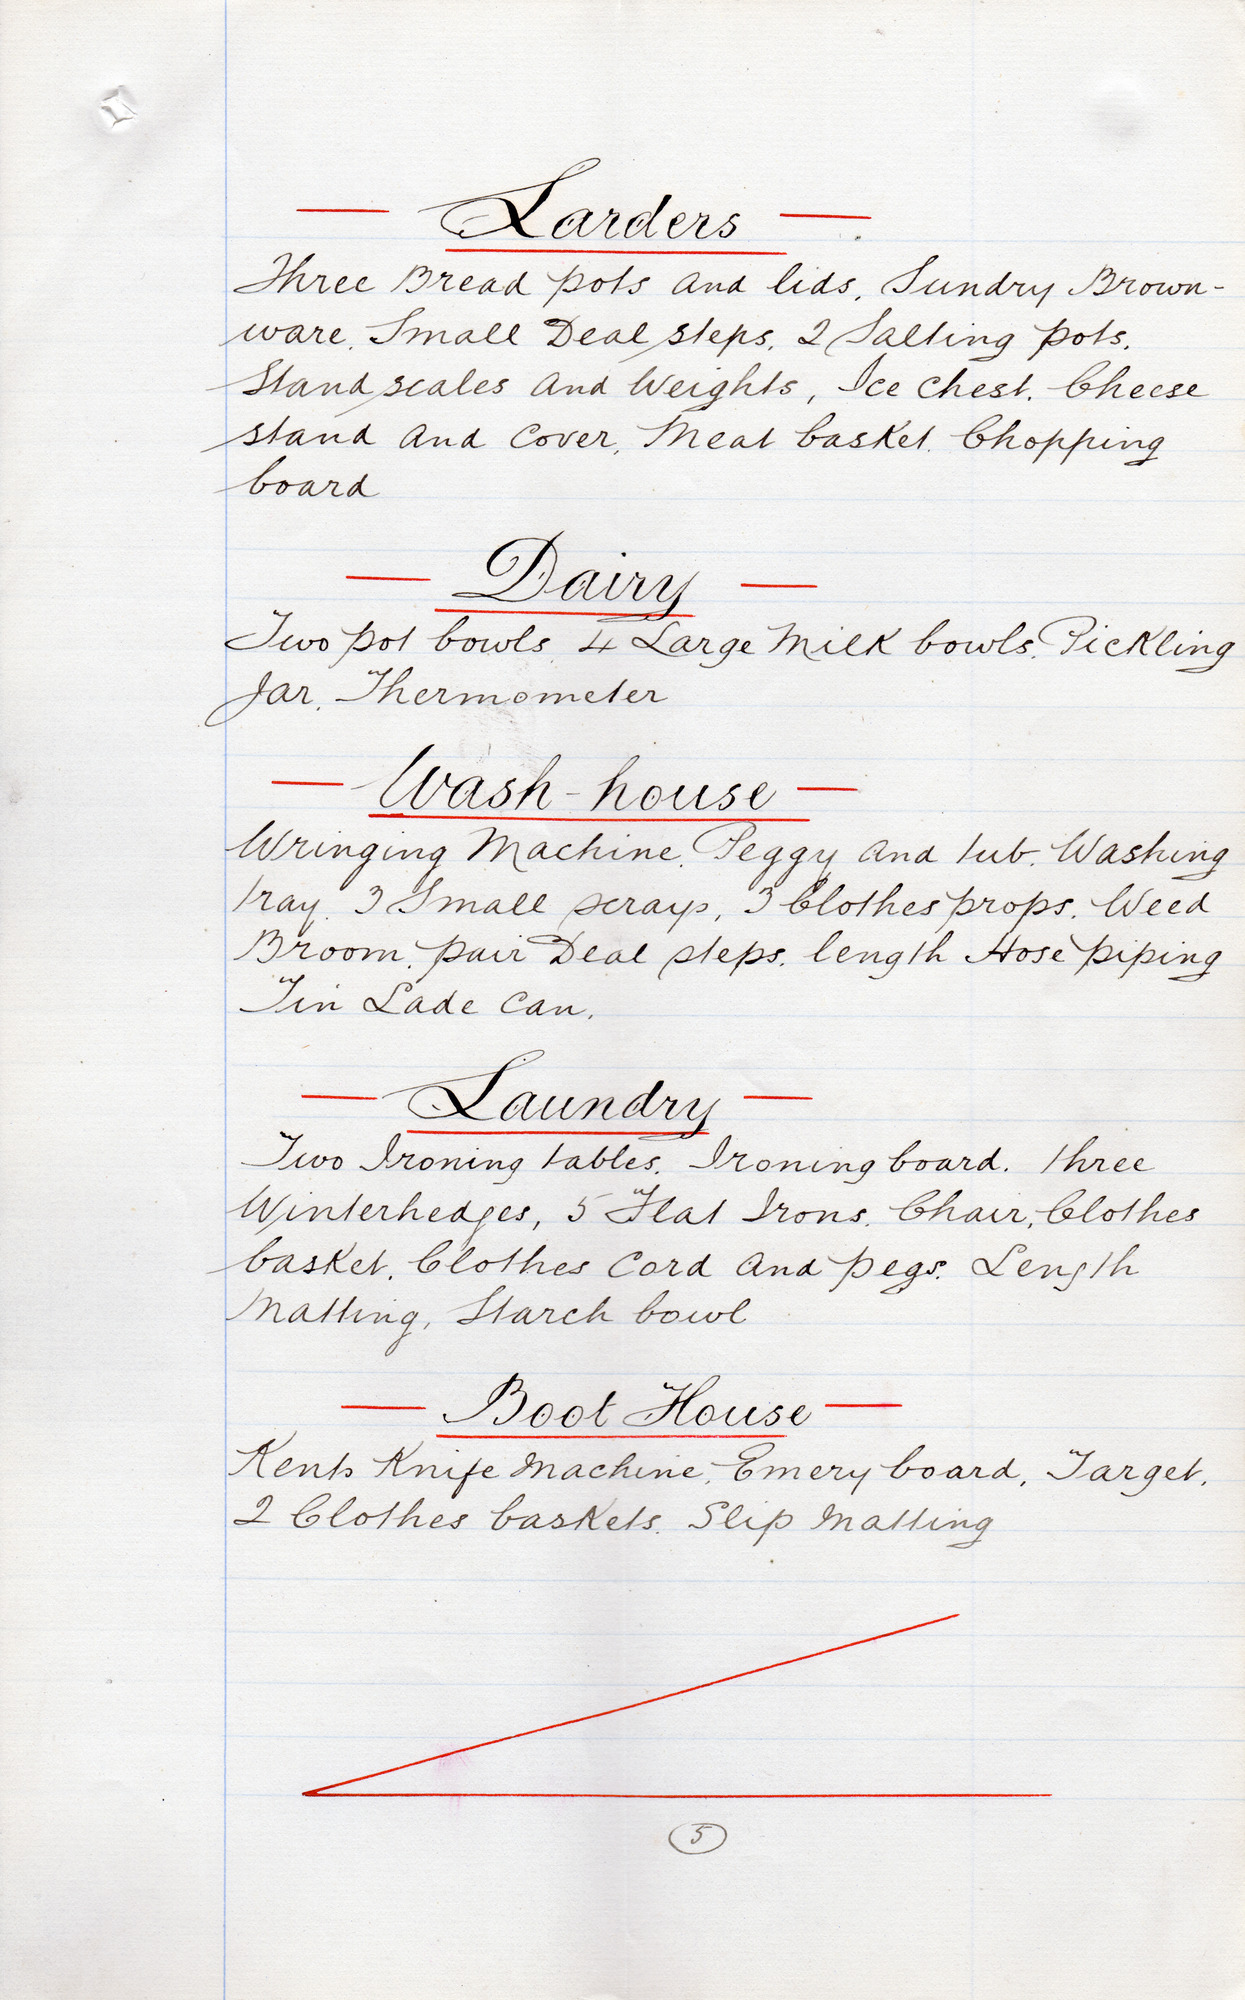 Larders
Three Bread pots and lids, Sundry Brown-
ware, Small Deal steps, 2 Salting pots,
Stand scales and Weights, Ice chest, Cheese
stand and cover, Meat basket, Chopping
board
Dairy
Two pot bowls, 4 Large Milk bowls, Pickling
Jar, Thermometer
Wash-house
Wringing Machine, Peggy and tub, Washing
tray, 3 Small scrays, 3 Clothes props, Weed
Broom, pair Deal steps, length Hose piping
Tin Lade can,
Laundry
Two Ironing tables, Ironing board, three
Winterhedges, 5 Flat Irons, Chair, Clothes
basket, Clothes cord and pegs, Length
Matting, Starch bowl
Boot House
Kents Knife Machine, Emery board, Target,
2 Clothes baskets, Slip Matting
5